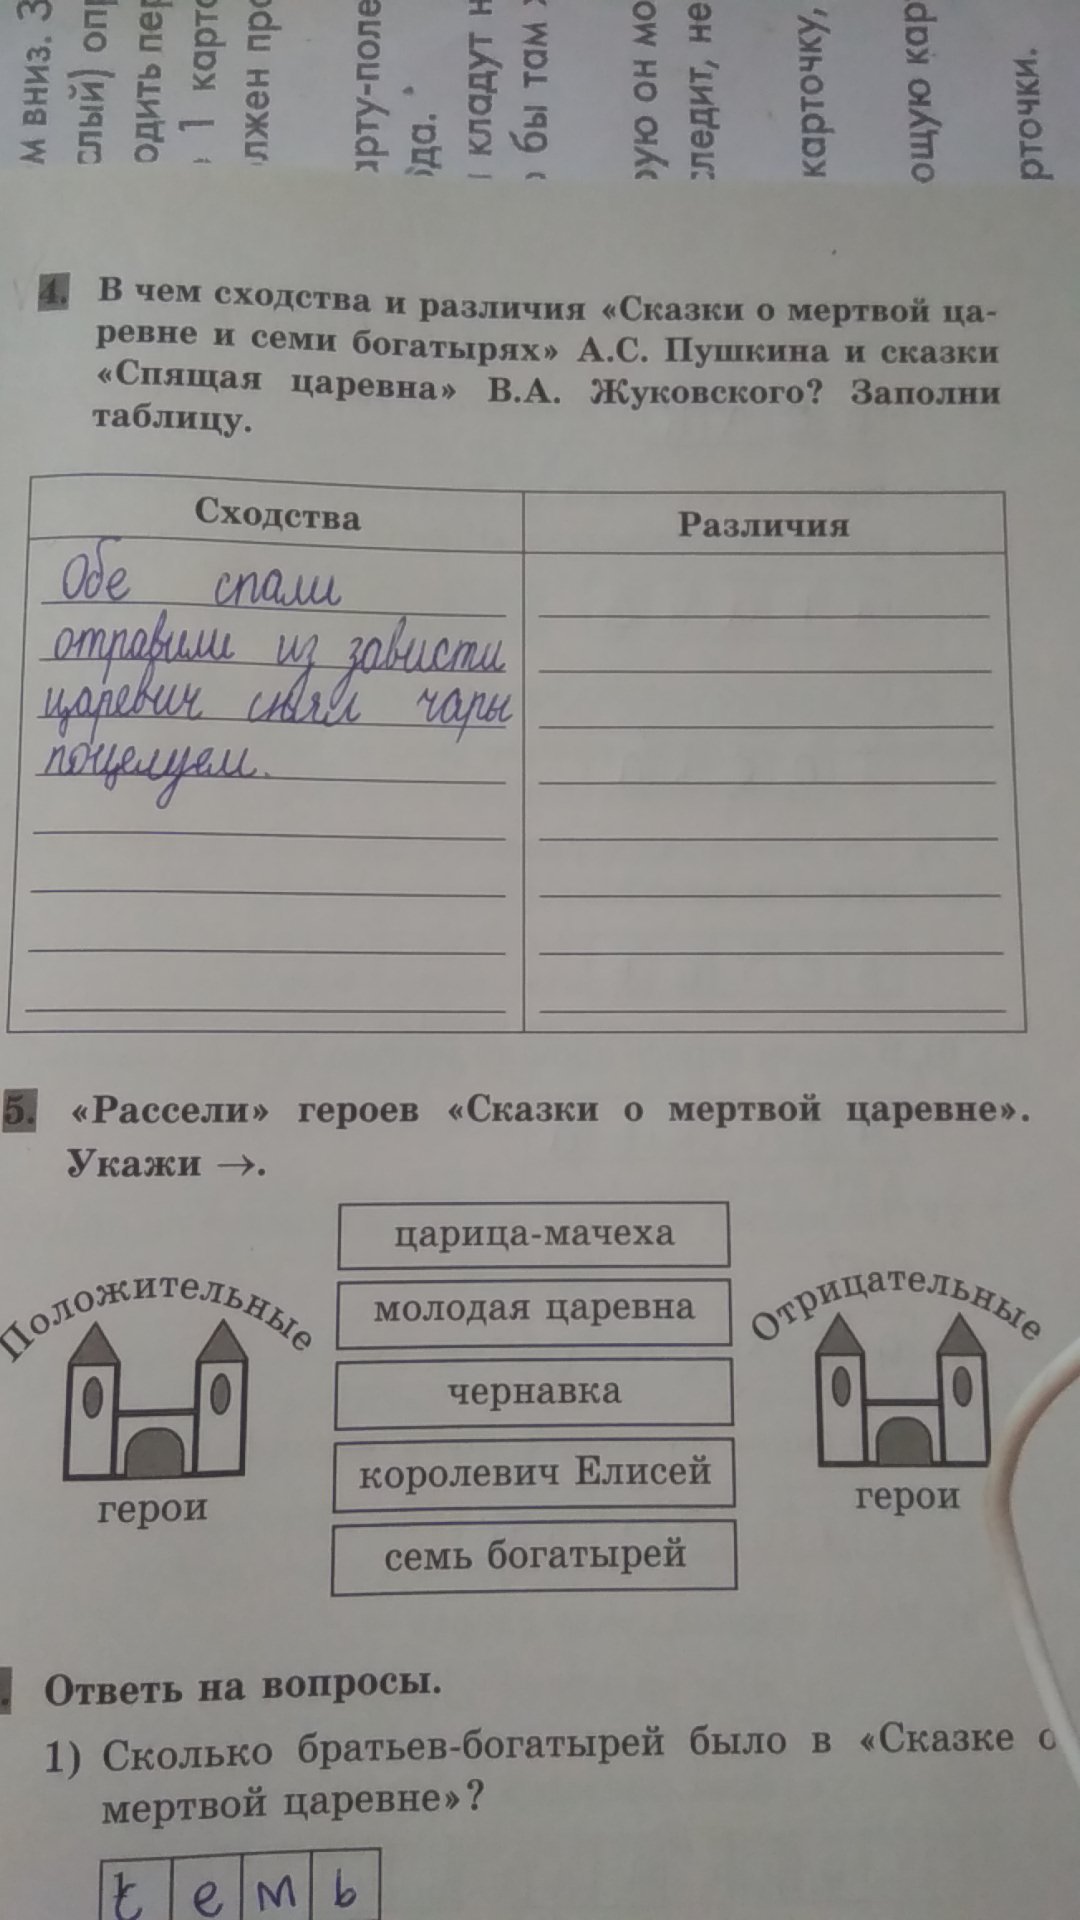 м вниз. З
слый) опр
одить пер
1 карто
лжен про
арту-поле
да.
кладут н
бы там
рую он мо
следит, не
карточку,
ощую кар
рточки.
4. В чем сходства и различия «Сказки о мертвой ца-
ревне и семи богатырях» А.С. Пушкина и сказки
«Спящая царевна» В.А. Жуковского? Заполни
таблицу.
Сходства
Различия
Обе спали
отравили из зависти
царевич снял чары
поцелуем.
5. «Рассели» героев «Сказки о мертвой царевне».
Укажи →.
Положительные
герои
царица-мачеха
молодая царевна
чернавка
королевич Елисей
семь богатырей
Отрицательные
герои
Ответь на вопросы.
1) Сколько братьев-богатырей было в «Сказке о
мертвой царевне»?
емь